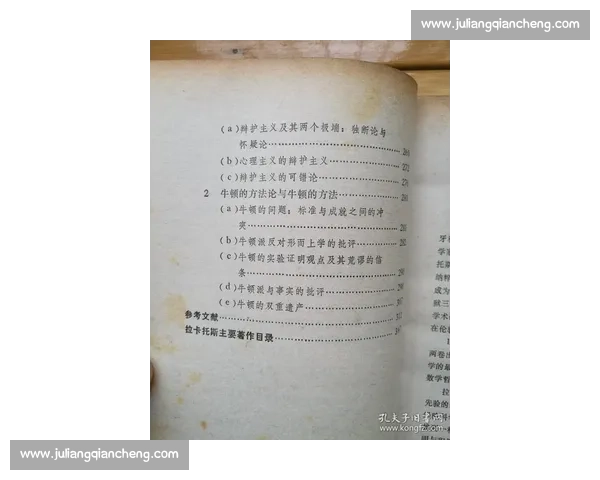 www.julianqiancheng.com
(a)辩护主义及其两个极端：独断论与
怀疑论
(b)心理主义的辩护主义 272
(c)辩护主义的可错论
2 牛顿的方法论与牛顿的方法 280
(a)牛顿的问题：标准与成就之间的冲
突 280
(b)牛顿派反对形而上学的批评
(c)牛顿的实验证明观点及其荒谬的信
条 290
(d)牛顿派与事实的批评
(e)牛顿的双重遗产
参考文献
拉卡托斯主要著作目录
学家
托英
纳特
成为
掀三
学术
在伦敦
两卷出
学的最
数学哲
拉
先验的
孔夫子旧书网
www.kongfz.com
www.julianqiancheng.com